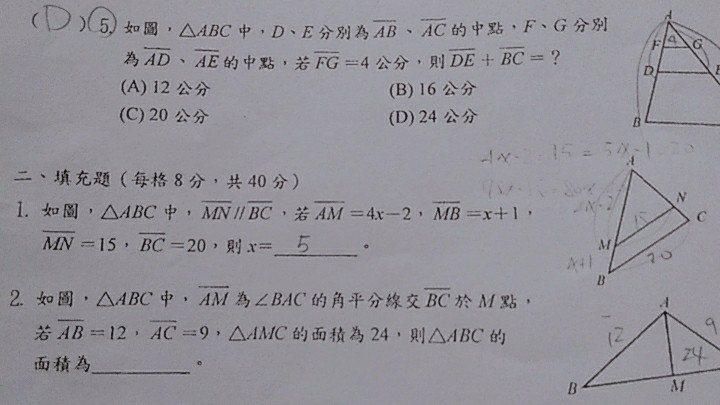 (D)5. 如圖，△ABC 中，D、E 分別為 AB、AC 的中點，F、G 分別
為 AD、AE 的中點，若 FG=4 公分，則 DE+BC=？
(A) 12 公分 (B) 16 公分
(C) 20 公分 (D) 24 公分
A
F 4 G
D
B
二、填充題（每格 8 分，共 40 分）
1. 如圖，△ABC 中，MN//BC，若 AM=4x-2，MB=x+1，
MN=15，BC=20，則 x= 5 。
4x-2:15=5x-1:20
A
N
15
C
M
x+1
20
B
2. 如圖，△ABC 中，AM 為∠BAC 的角平分線交 BC 於 M 點，
若 AB=12，AC=9，△AMC 的面積為 24，則△ABC 的
面積為 。
A
12
9
24
B
M